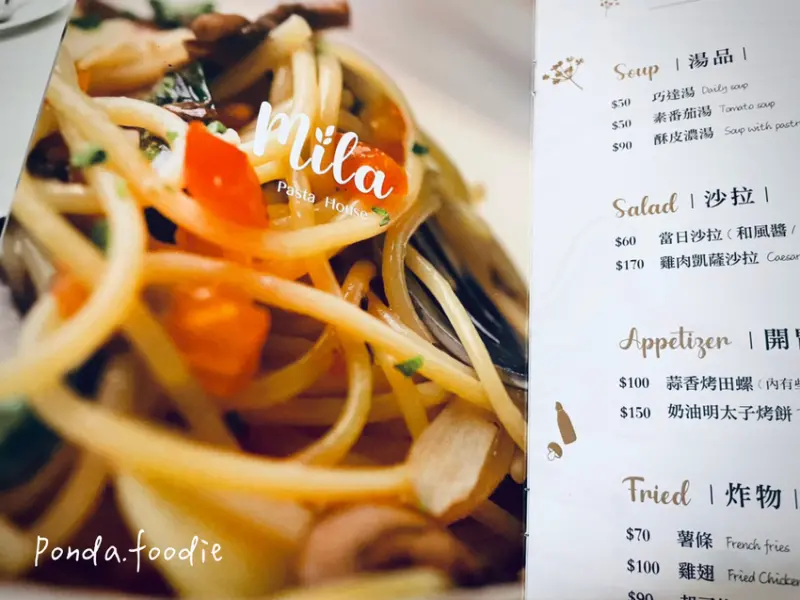 mila
Pasta House
Ponda.foodie
Soup | 湯品 |
$50 巧達湯 Daily soup
$50 素番茄湯 Tomato soup
$90 酥皮濃湯 Soup with pastr
Salad | 沙拉 |
$60 當日沙拉（和風醬 /
$170 雞肉凱薩沙拉 Caesar
Appetizer | 開
$100 蒜香烤田螺（內有
$150 奶油明太子烤餅
Fried | 炸物 |
$70 薯條 French fries
$100 雞翅 Fried Chicken
$90